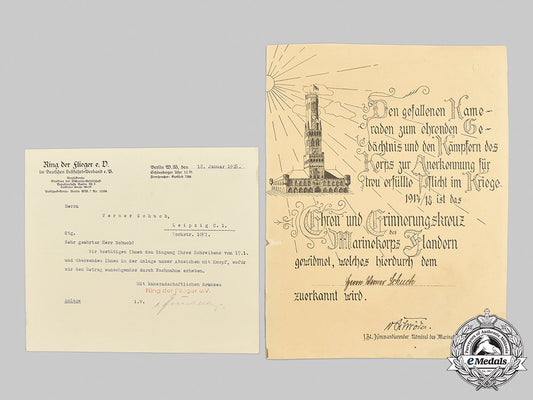 Ring der Flieger e. V.
im Deutschen Luftfahrt-Verband e. V.
Berlin W. 35, den 18. Januar
Herrn
Werner Schuch,
Leipzig C. 1,
Stg.
Sehr geehrter Herr Schuch!
Wir bestätigen Ihnen den Eingang Ihres Schreibens vom 17.1.
und überreichen Ihnen in der Anlage unser Abzeichen mit Knopf, wofür
wir den Betrag wunschgemäss durch Nachnahme erheben.
Mit kameradschaftlichen Grüssen
Ring der Flieger e.V.
Anlage
i.V.
Den gefallenen Kame-
raden zum ehrenden Ge-
dächtnis und den Kämpfern des
Korps zur Anerkennung für
treu erfüllte Pflicht im Kriege
1914/18 ist das
Ehren und Erinnerungskreuz
des
Marinekorps Flandern
gewidmet, welches hierdurch dem
Herrn Werner Schuch
zuerkannt wird.
Kommandierender Admiral des
eMedals